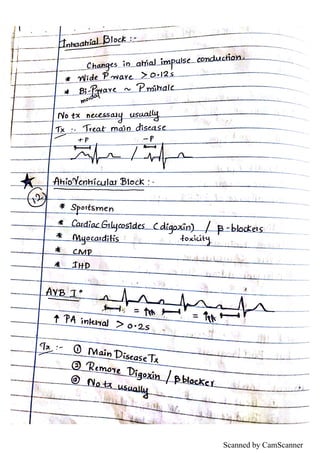 Intraatrial Block :-
Changes in atrial impulse conduction.
* Wide P wave > 0.12s
* Bi-P wave ~ P mitrale
modal
No tx necessary usually
Tx :- Treat main disease
+P / -P
★ AtrioVentricular Block :-
12
* Sportsmen
* Cardiac Glycosides (digoxin) / β-blockers
toxicity
* Myocarditis
* CMP
* IHD
AVB I°
= ↑th = ↑th
↑ PA interval > 0.2s
Tx :- ① Main Disease Tx
② Remove Digoxin / β blocker
③ No tx usually
Scanned by CamScanner